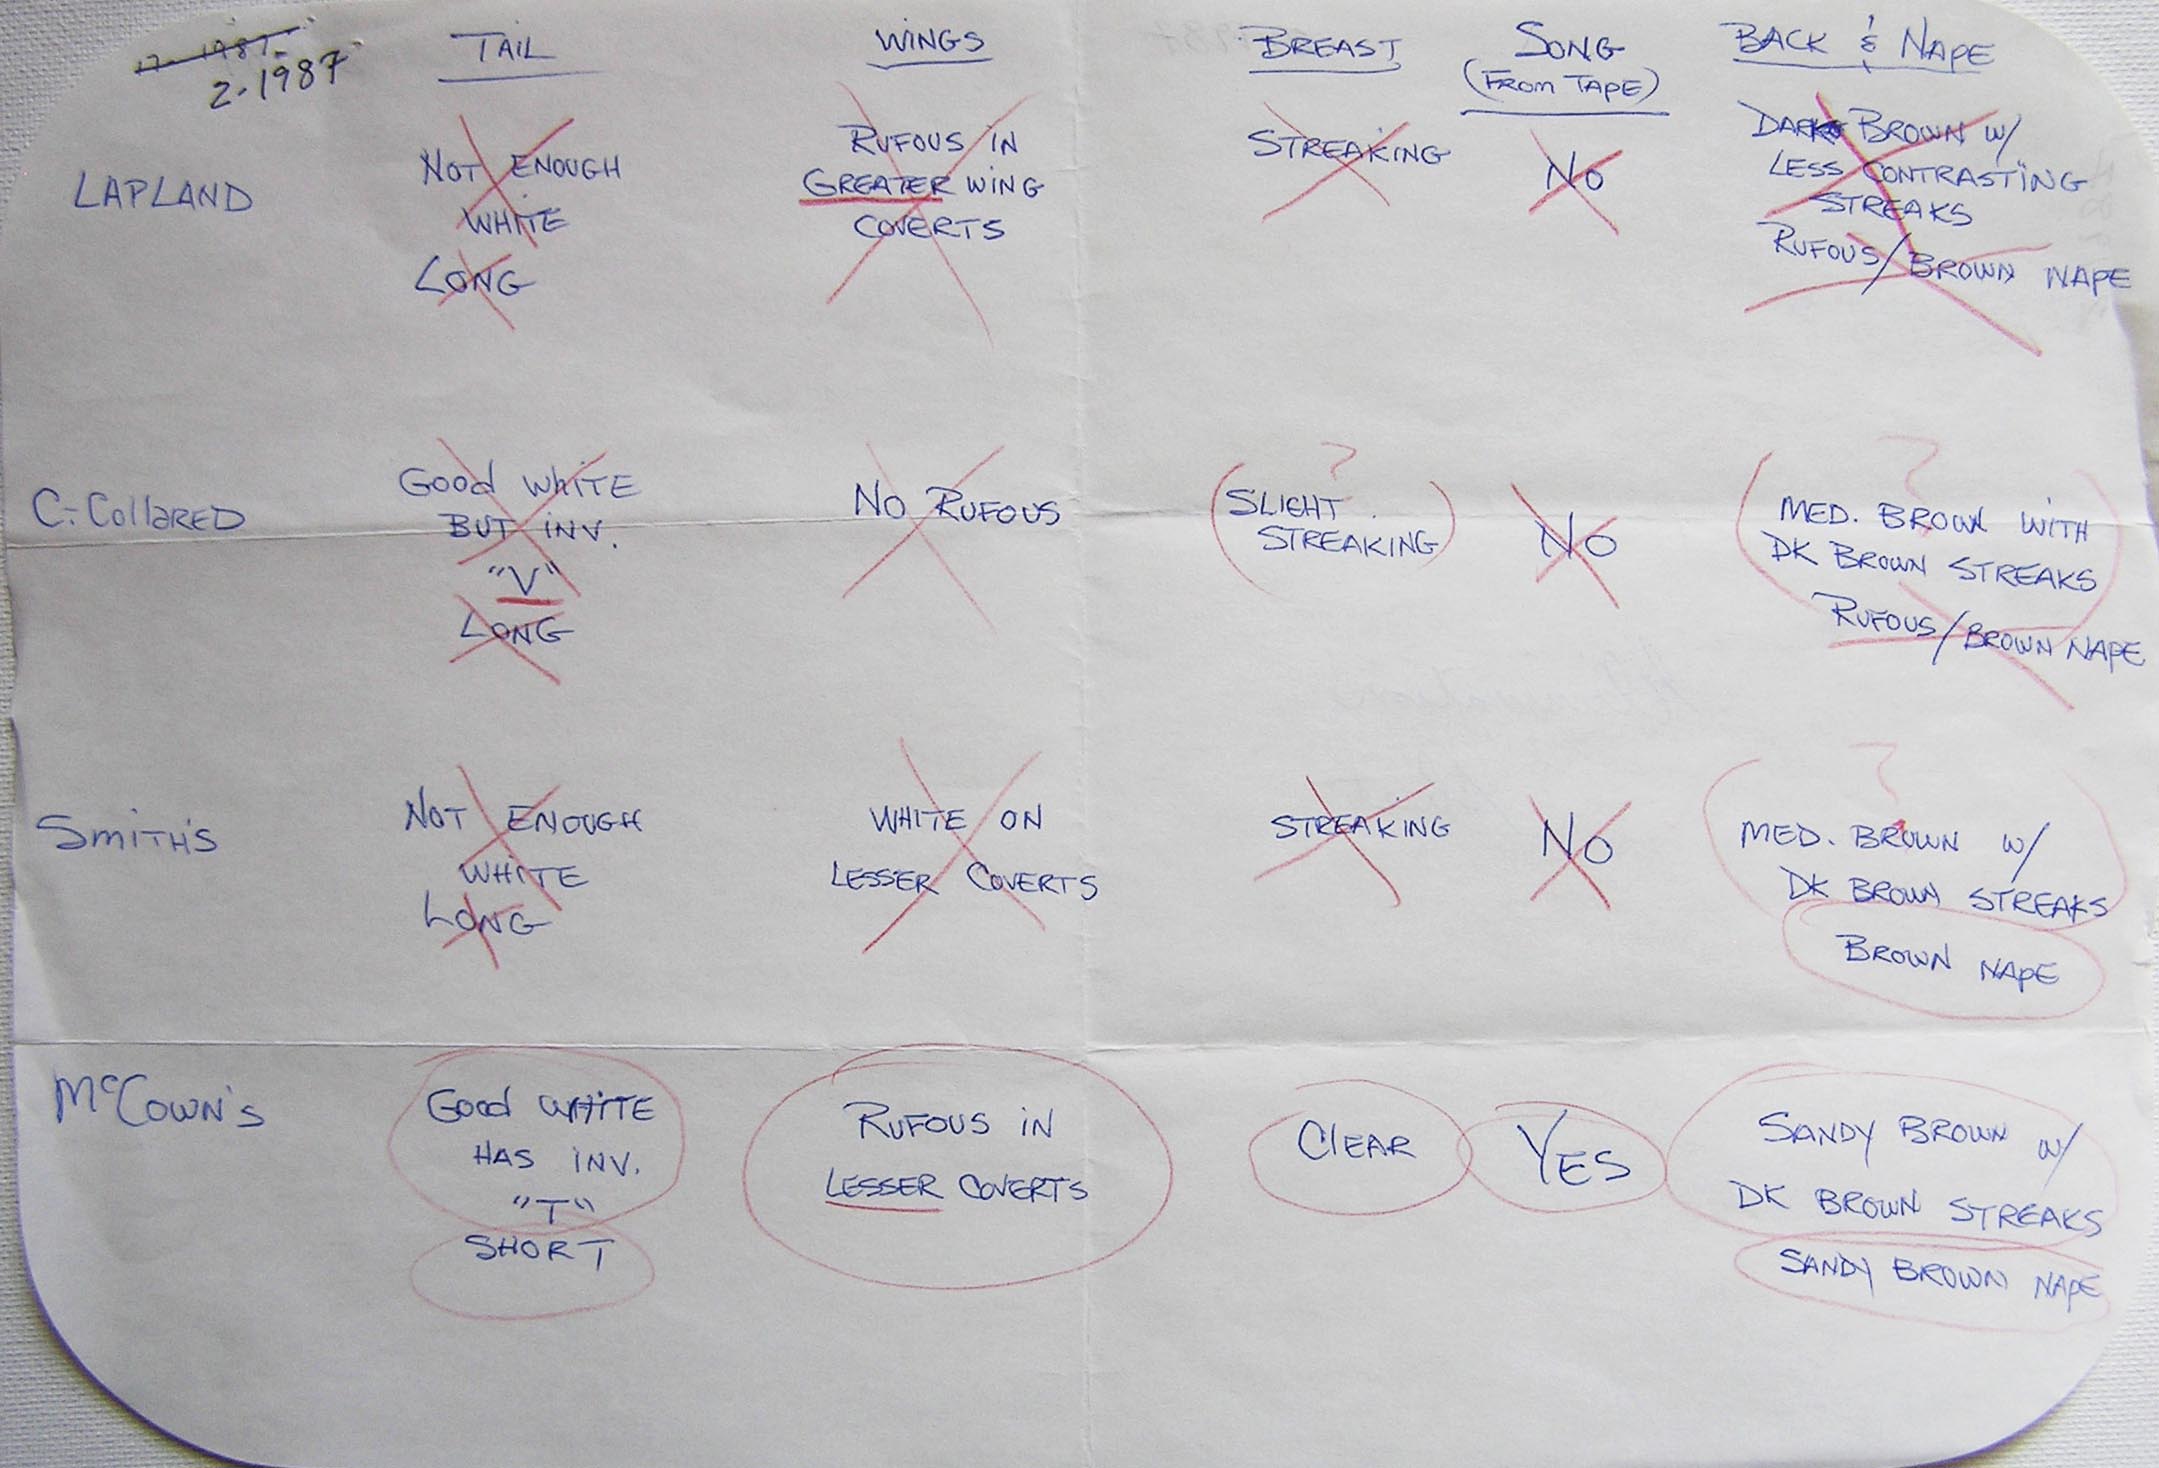 2-1987
TAIL
WINGS
BREAST
SONG
(FROM TAPE)
BACK & NAPE
LAPLAND
NOT ENOUGH
WHITE
LONG
RUFOUS IN
GREATER WING
COVERTS
STREAKING
NO
DARK BROWN W/
LESS CONTRASTING
STREAKS
RUFOUS/BROWN NAPE
C-COLLARED
GOOD WHITE
BUT INV.
"V"
LONG
NO RUFOUS
?
(SLIGHT
STREAKING)
NO
?
MED. BROWN WITH
DK BROWN STREAKS
RUFOUS/BROWN NAPE
SMITH'S
NOT ENOUGH
WHITE
LONG
WHITE ON
LESSER COVERTS
STREAKING
NO
?
MED. BROWN W/
DK BROWN STREAKS
BROWN NAPE
McCOWN'S
GOOD WHITE
HAS INV.
"T"
SHORT
RUFOUS IN
LESSER COVERTS
CLEAR
YES
SANDY BROWN W/
DK BROWN STREAKS
SANDY BROWN NAPE